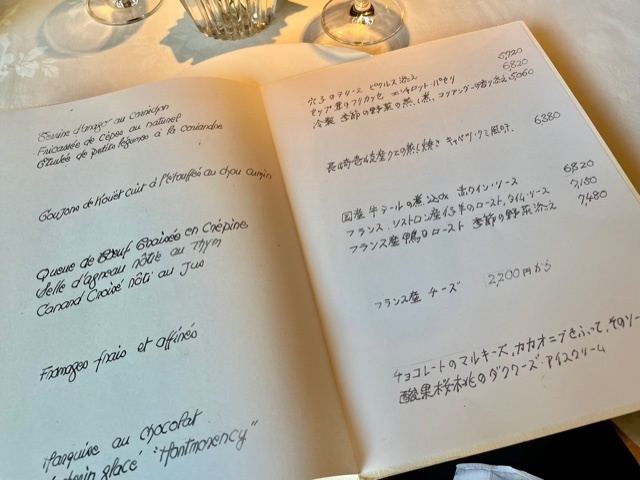 Terrine d'anago au cornichon
Fricassée de cèpes au naturel
Etuvée de petits légumes à la coriandre
Goujons de Kouët cuit à l'étouffée au chou cumin
Queue de Bœuf Braisée en Crépine
Selle d'agneau rôtie au Thym
Canard Croisé rôti au Jus
Fromages frais et affinés
Marquise au chocolat
glacé "Montmorency"
穴子のテリーヌ ピクルス添え 5720
セップ茸のフリカッセ エシャロット・パセリ 6820
冷製 季節の野菜の蒸し煮、コリアンダーの香り添え 5060
長崎壱岐産クエの蒸し焼き キャベツ・クミン風味 6380
国産牛テールの煮込み 赤ワイン・ソース 6820
フランス、シストロン産仔羊のロースト、タイム・ソース 7150
フランス産鴨のロースト 季節の野菜添え 7480
フランス産 チーズ 2,200円から
チョコレートのマルキーズ、カカオニブをふって、そのソー
酸果桜桃のダクワーズ・アイスクリーム